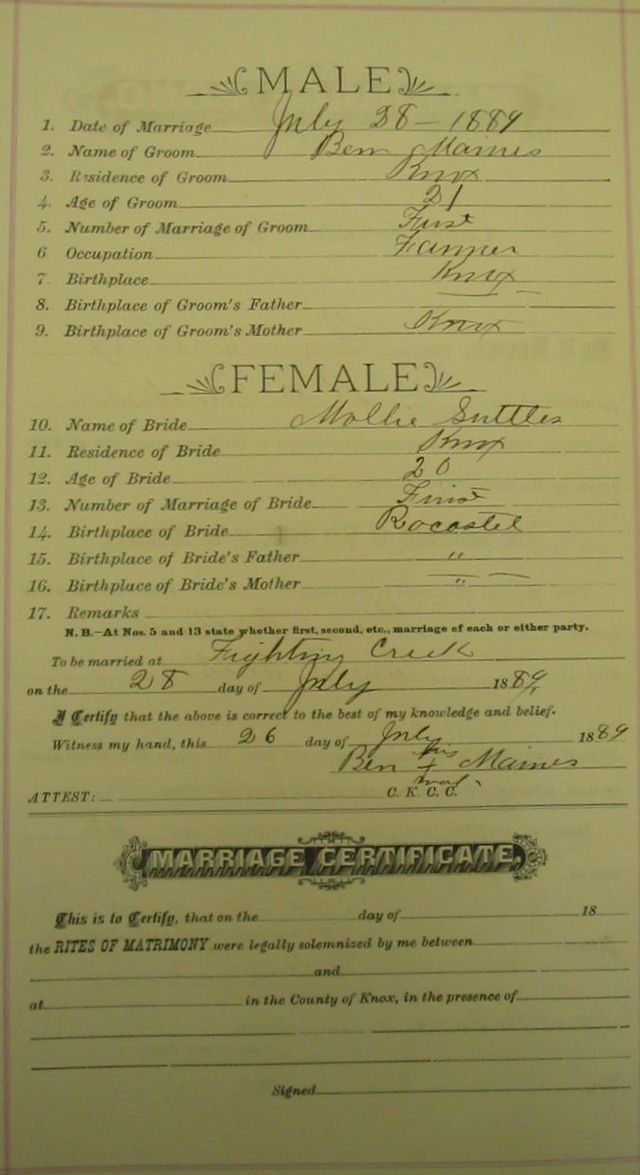 MALE
1. Date of Marriage July 28 - 1889
2. Name of Groom Ben Maines
3. Residence of Groom Knox
4. Age of Groom 21
5. Number of Marriage of Groom First
6 Occupation Farmer
7. Birthplace Knox
8. Birthplace of Groom's Father
9. Birthplace of Groom's Mother Knox
FEMALE
10. Name of Bride Mollie Suttles
11. Residence of Bride Knox
12. Age of Bride 20
13. Number of Marriage of Bride First
14. Birthplace of Bride
15. Birthplace of Bride's Father "
16. Birthplace of Bride's Mother "
17. Remarks
N. B.—At Nos. 5 and 13 state whether first, second, etc., marriage of each or either party.
To be married at Fighting Creek
on the 28 day of July 1889,
I Certify that the above is correct to the best of my knowledge and belief.
Witness my hand, this 26 day of July 1889
his
Ben + Maines
mark
ATTEST: C. K. C. C.
MARRIAGE CERTIFICATE,
This is to Certify, that on the day of 18
the RITES OF MATRIMONY were legally solemnized by me between
and
at in the County of Knox, in the presence of
Signed